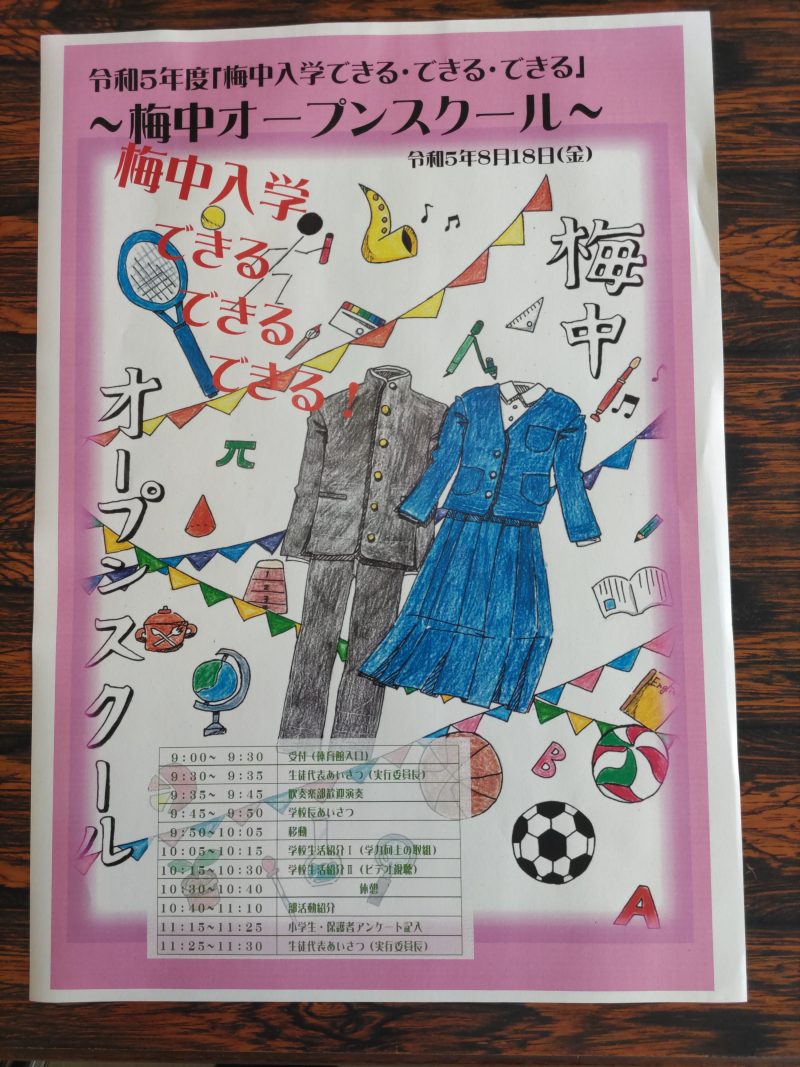 令和5年度「梅中入学できる・できる・できる」
~梅中オープンスクール~
令和5年8月18日(金)
梅中入学
できる
できる
できる！
梅中
オープンスクール
π
1
2
3
Englis
B
A
9:00~ 9:30 受付（体育館入口）
9:30~ 9:35 生徒代表あいさつ（実行委員長）
9:35~ 9:45 吹奏楽部歓迎演奏
9:45~ 9:50 学校長あいさつ
9:50~10:05 移動
10:05~10:15 学校生活紹介Ⅰ（学力向上の取組）
10:15~10:30 学校生活紹介Ⅱ（ビデオ視聴）
10:30~10:40 休憩
10:40~11:10 部活動紹介
11:15~11:25 小学生・保護者アンケート記入
11:25~11:30 生徒代表あいさつ（実行委員長）